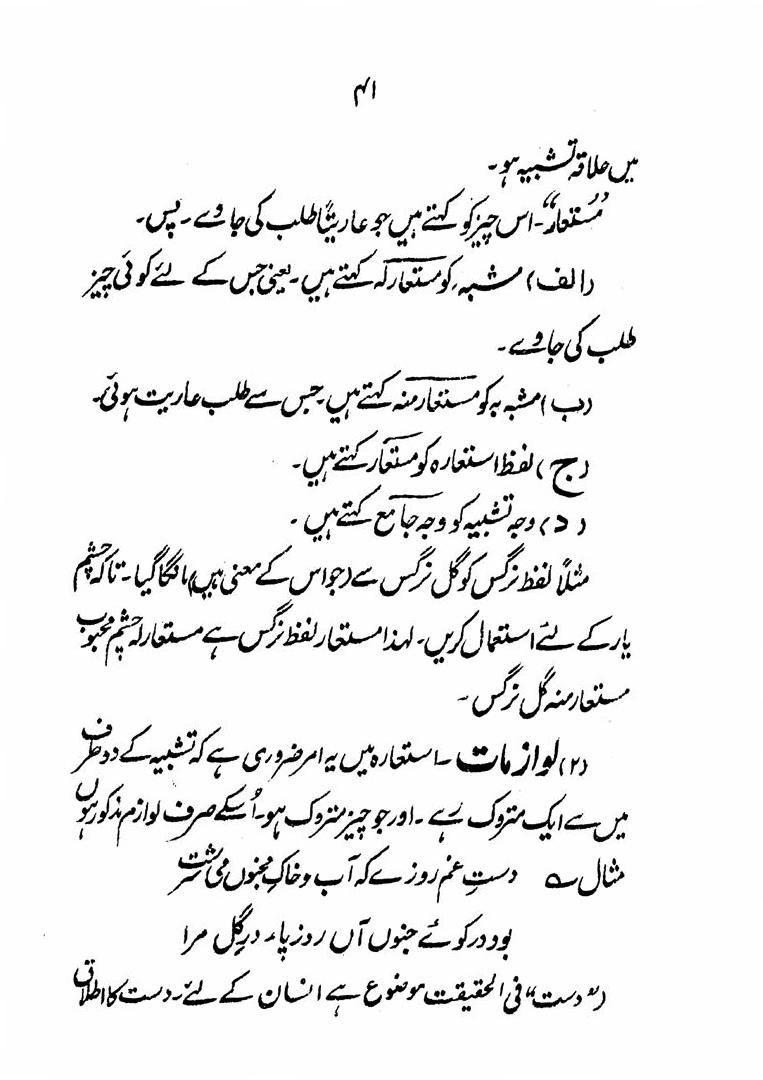 ۴۱
میں علاقہ تشبیہ ہو۔
"مُستعار"۔ اس چیز کو کہتے ہیں جو عاریتاً طلب کی جاوے۔ پس۔
(الف) مشبہ، کو مستعار لہ کہتے ہیں۔ یعنی جس کے لئے کوئی چیز
طلب کی جاوے۔
(ب) مشبہ بہ کو مستعار منہ کہتے ہیں۔ جس سے طلب عاریت ہوئی۔
(ج) لفظ استعارہ کو مستعار کہتے ہیں۔
(د) وجہ تشبیہ کو وجہ جامع کہتے ہیں۔
مثلاً لفظ نرگس کو گل نرگس سے (جو اس کے معنی ہیں) مانگا گیا۔ تاکہ چشم
یار کے لئے استعمال کریں۔ لہذا مستعار لفظ نرگس ہے مستعار لہ چشم محبوب
مستعار منہ گل نرگس۔
(۲) لوازمات۔ استعارہ میں یہ امر ضروری ہے کہ تشبیہ کے دو طرف
میں سے ایک متروک رہے۔ اور جو چیز متروک ہو۔ اُسکے صرف لوازم مذکور ہوں
مثال ؎ دستِ غم روزے کہ آب و خاکِ مجنوں می سرشت
بود در کوئے جنوں آں روز پاء در گِل مرا
("دست" فی الحقیقت موضوع ہے انسان کے لئے۔ دست کا اطلاق